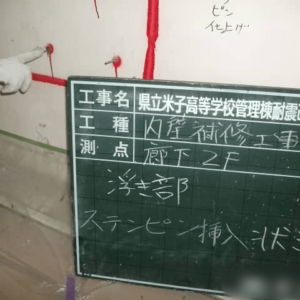 ピン
仕上げ
工事名 県立米子高等学校管理棟耐震
工種 内壁補修工事
測点 廊下 2F
浮き部
ステンピン挿入状